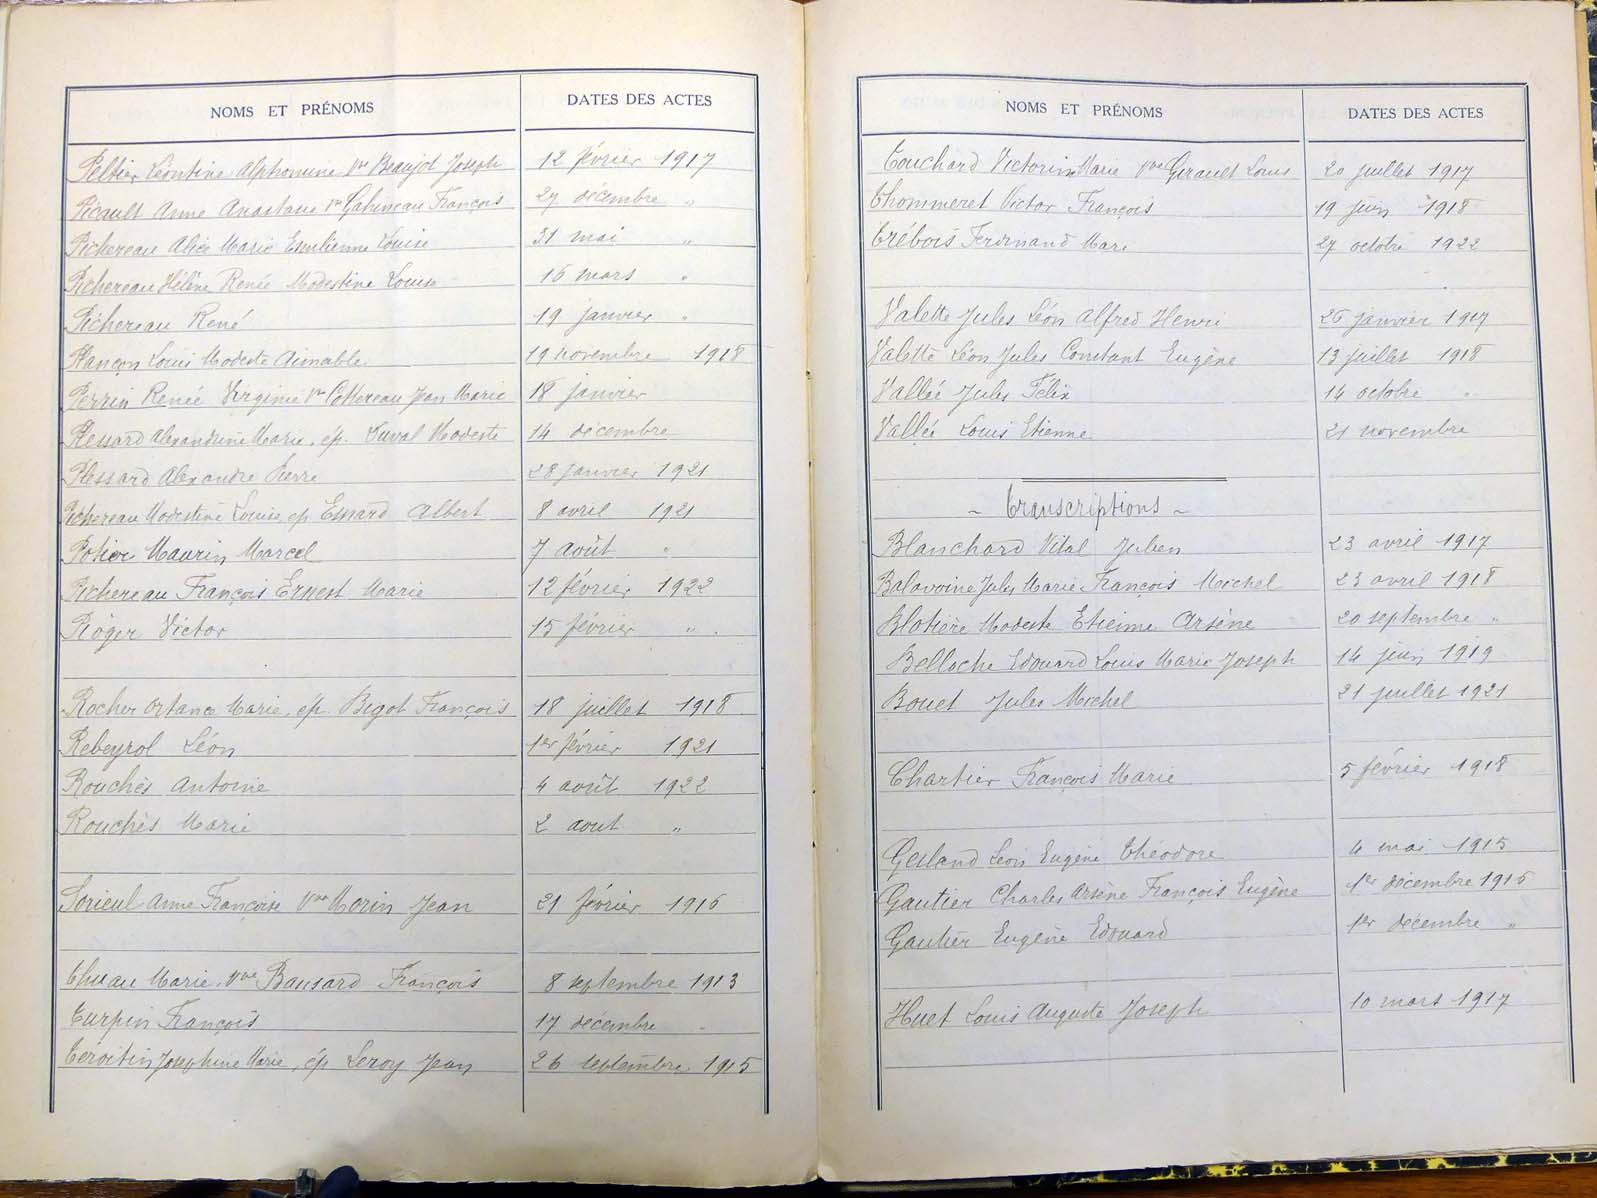 NOMS ET PRÉNOMS DATES DES ACTES
Peltier Léontine Alphonsine Vve Beaujot Joseph 12 février 1917
Picault Anne Anastasie Vve François 27 décembre "
Pichereau Alice Marie Emilienne Louise 31 mai "
Pichereau Hélène Renée Modestine Louise 16 mars "
Pichereau René 19 janvier "
Plançon Louis Modeste Aimable 19 novembre 1918
Perrin Renée Virginie Vve Cottereau Jean Marie 18 janvier
Plessard Alexandrine Marie, ép. Duval Modeste 14 décembre
Plessard Alexandre Pierre 28 janvier 1921
Pichereau Modestine Louise, ép Esnard Albert 8 avril 1921
Potier Maurin Marcel 7 août "
Pichereau François Ernest Marie 12 février 1922
Roger Victor 15 février " .
Rocher Ortance Marie, ép. Bigot François 18 juillet 1918
Rebeyrol Léon 1er février 1921
Rouchès Antoine 4 août 1922
Rouchès Marie 2 aout "
Sorieul Anne Françoise Vve Morin Jean 21 février 1916
Thuau Marie, Vve Bansard François 8 septembre 1913
Turpin François 17 décembre "
Joséphine Marie, ép Leroy Jean 26 septembre 1915
NOMS ET PRÉNOMS DATES DES ACTES
Touchard Victorine Marie Vve Girault Louis 20 juillet 1917
Thommeret Victor François 19 juin 1918
Trébois Ferdinand Marie 27 octobre 1922
Valette Jules Léon Alfred Henri 26 janvier 1917
Valette Léon Jules Constant Eugène 13 juillet 1918
Vallée Jules Félix 14 octobre "
Vallée Louis Etienne 21 novembre
~ Transcriptions ~
Blanchard Vital Julien 23 avril 1917
Balavoine Jules Marie François Michel 23 avril 1918
Blotière Modeste Etienne Arsène 20 septembre "
Belloche Edouard Louis Marie Joseph 14 juin 1919
Bouet Jules Michel 21 juillet 1921
Chartier François Marie 5 février 1918
Galland Léon Eugène Théodore 4 mai 1915
Gautier Charles Arsène François Eugène 1er décembre 1916
Gautier Eugène Edouard 1er décembre "
Huet Louis Auguste Joseph 10 mars 1917